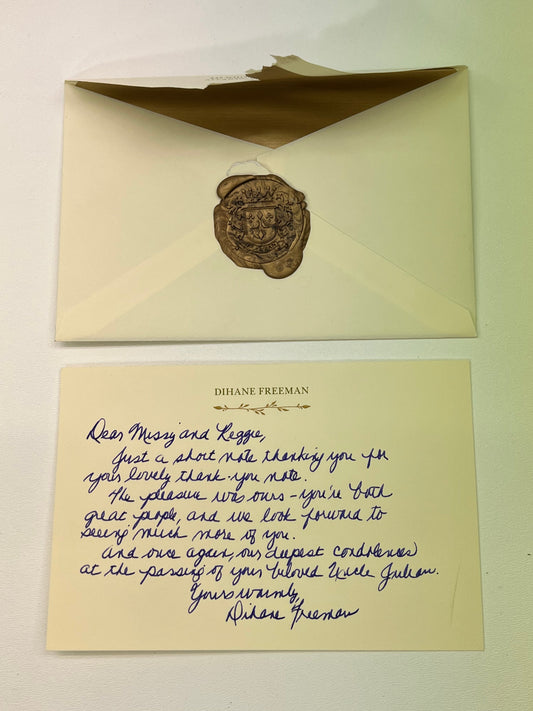 DIHANE FREEMAN
Dear Missy and Reggie,
Just a short note thanking you for
your lovely thank-you note.
The pleasure was ours - you're both
great people, and we look forward to
seeing much more of you.
And once again, our deepest condolences
at the passing of your beloved Uncle Julian.
Yours warmly,
Dihane Freeman